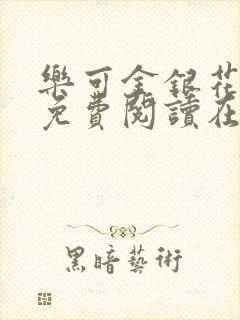 樂可金銀花
免費閱讀在
黑暗藝術